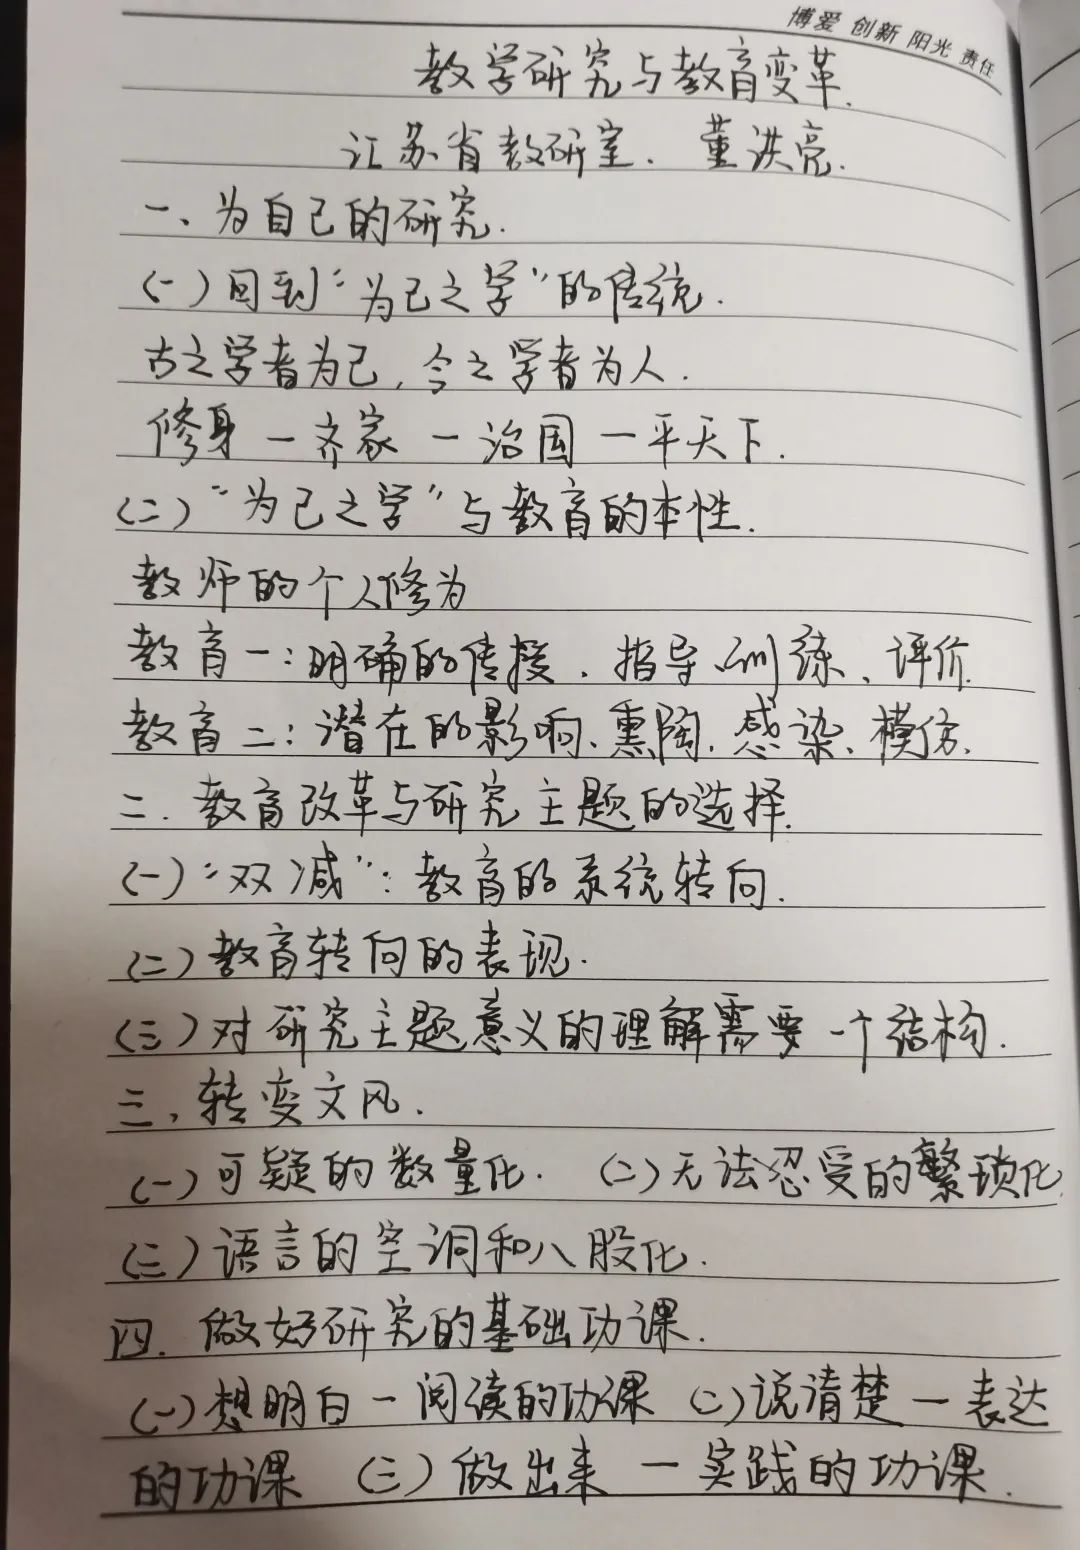 博爱 创新 阳光 责任
教学研究与教育变革.
江苏省教研室. 董洪亮.
一、为自己的研究.
(一)回到“为己之学”的传统.
古之学者为己,今之学者为人.
修身—齐家—治国—平天下.
(二)“为己之学”与教育的本性.
教师的个人修为
教育一:明确的传授、指导、训练、评价.
教育二:潜在的影响、熏陶、感染、模仿.
二.教育改革与研究主题的选择.
(一)“双减”:教育的系统转向.
(二)教育转向的表现.
(三)对研究主题意义的理解需要一个结构.
三、转变文风.
(一)可疑的数量化. (二)无法忍受的繁琐化.
(三)语言的空洞和八股化.
四.做好研究的基础功课.
(一)想明白—阅读的功课 (二)说清楚—表达
的功课 (三)做出来—实践的功课.